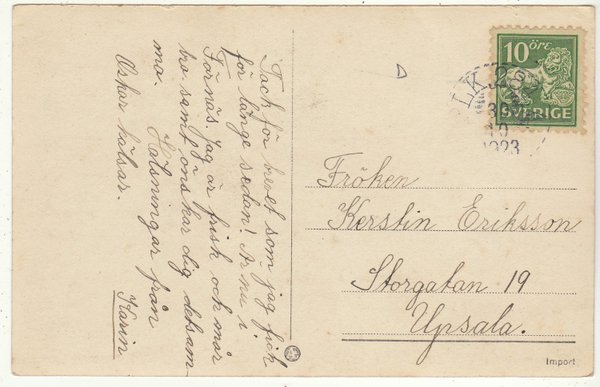 Tack för brevet som jag fick
för länge sedan! Är nu i
Fornäs. Jag är frisk och mår
bra samt önskar dig detsam
ma. Hälsningar från
Oskar hälsar. Karin
10 ÖRE
SVERIGE
LK
1923
Fröken
Kerstin Eriksson
Storgatan 19
Upsala.
Import